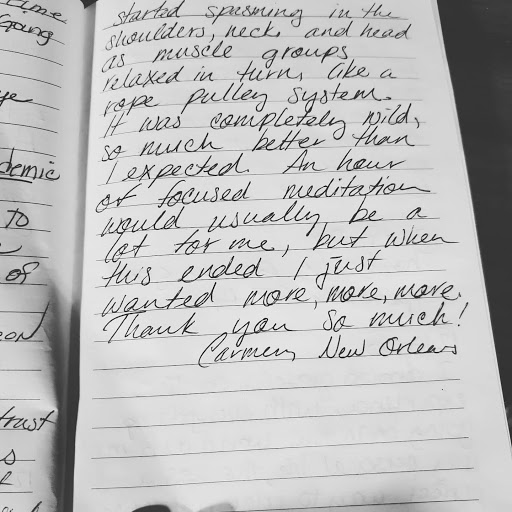 time
Going
ye
demic
to
of
eon
trust
s
started spasming in the
shoulders, neck, and head
as muscle groups
relaxed in turn, like a
rope pulley system.
It was completely wild,
so much better than
I expected. An hour
of focused meditation
would usually be a
lot for me, but when
this ended I just
wanted more, more, more.
Thank you so much!
Carmen, New Orleans